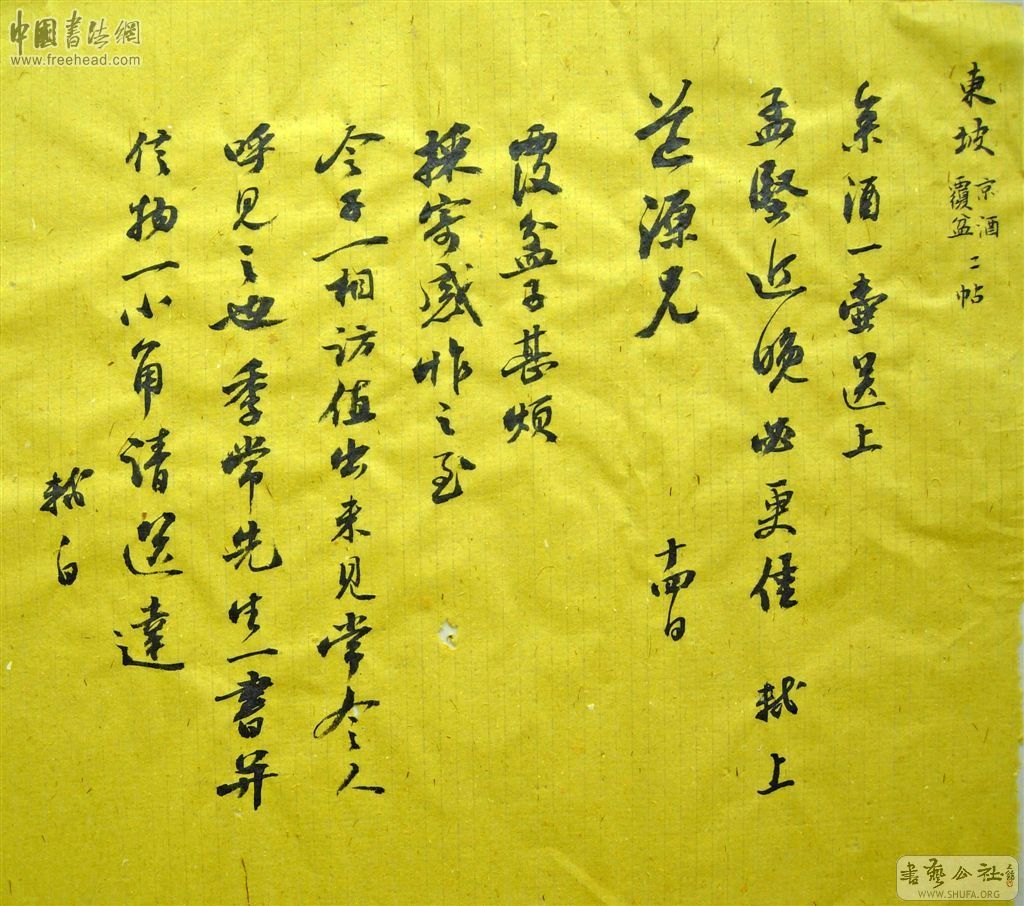 中国書法網
www.freehead.com
東坡 京酒
覆盆 二帖
京酒一壷送上
孟堅近晚必更佳 軾上
道源兄 十四日
覆盆子甚煩
採寄感怍之至
令子一相訪值出未見當令人
呼見之也季常先生一書并
信物一小角請送達
軾白
書藝公社
WWW.SHUFA.ORG